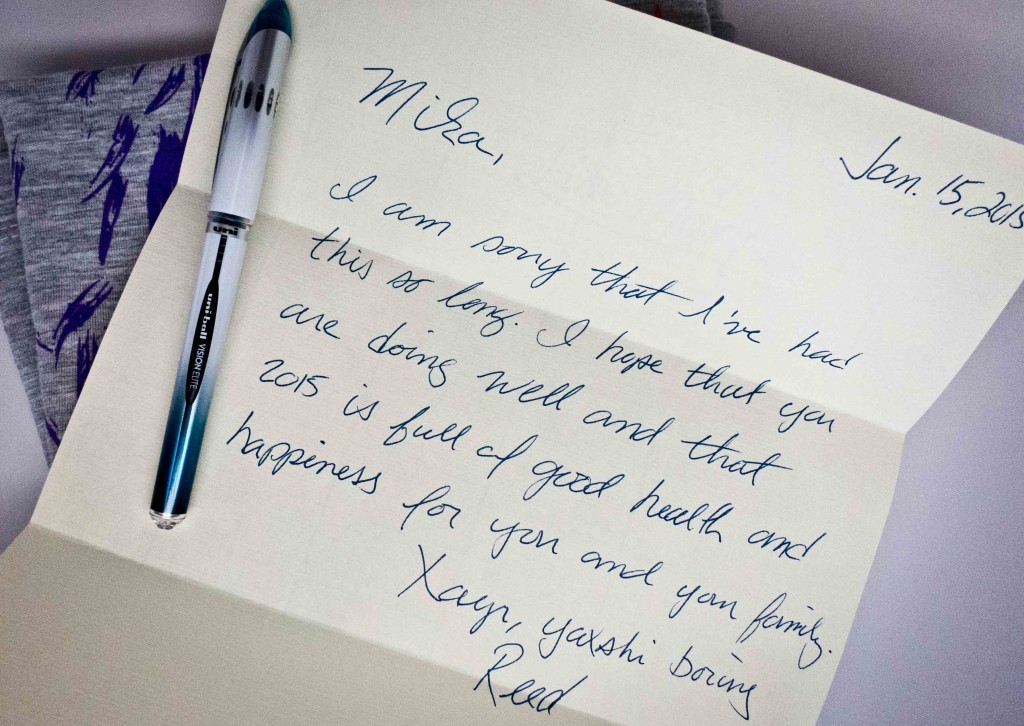 Jan. 15, 2015
Mika,
I am sorry that I've had
this so long. I hope that you
are doing well and that
2015 is full of good health and
happiness for you and your family.
Xayr, yaxshi boring
Reed
uni
uni-ball VISION ELITE